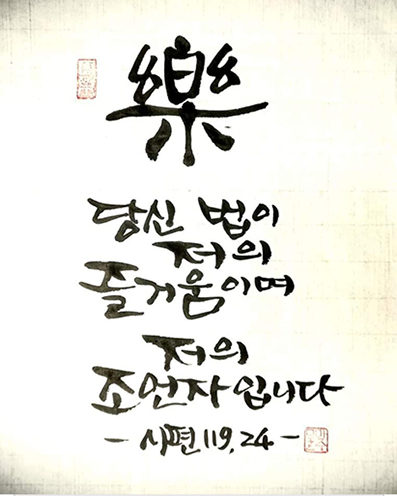 樂
당신 법이
저의
즐거움이며
저의
조언자입니다
- 시편 119, 24 -